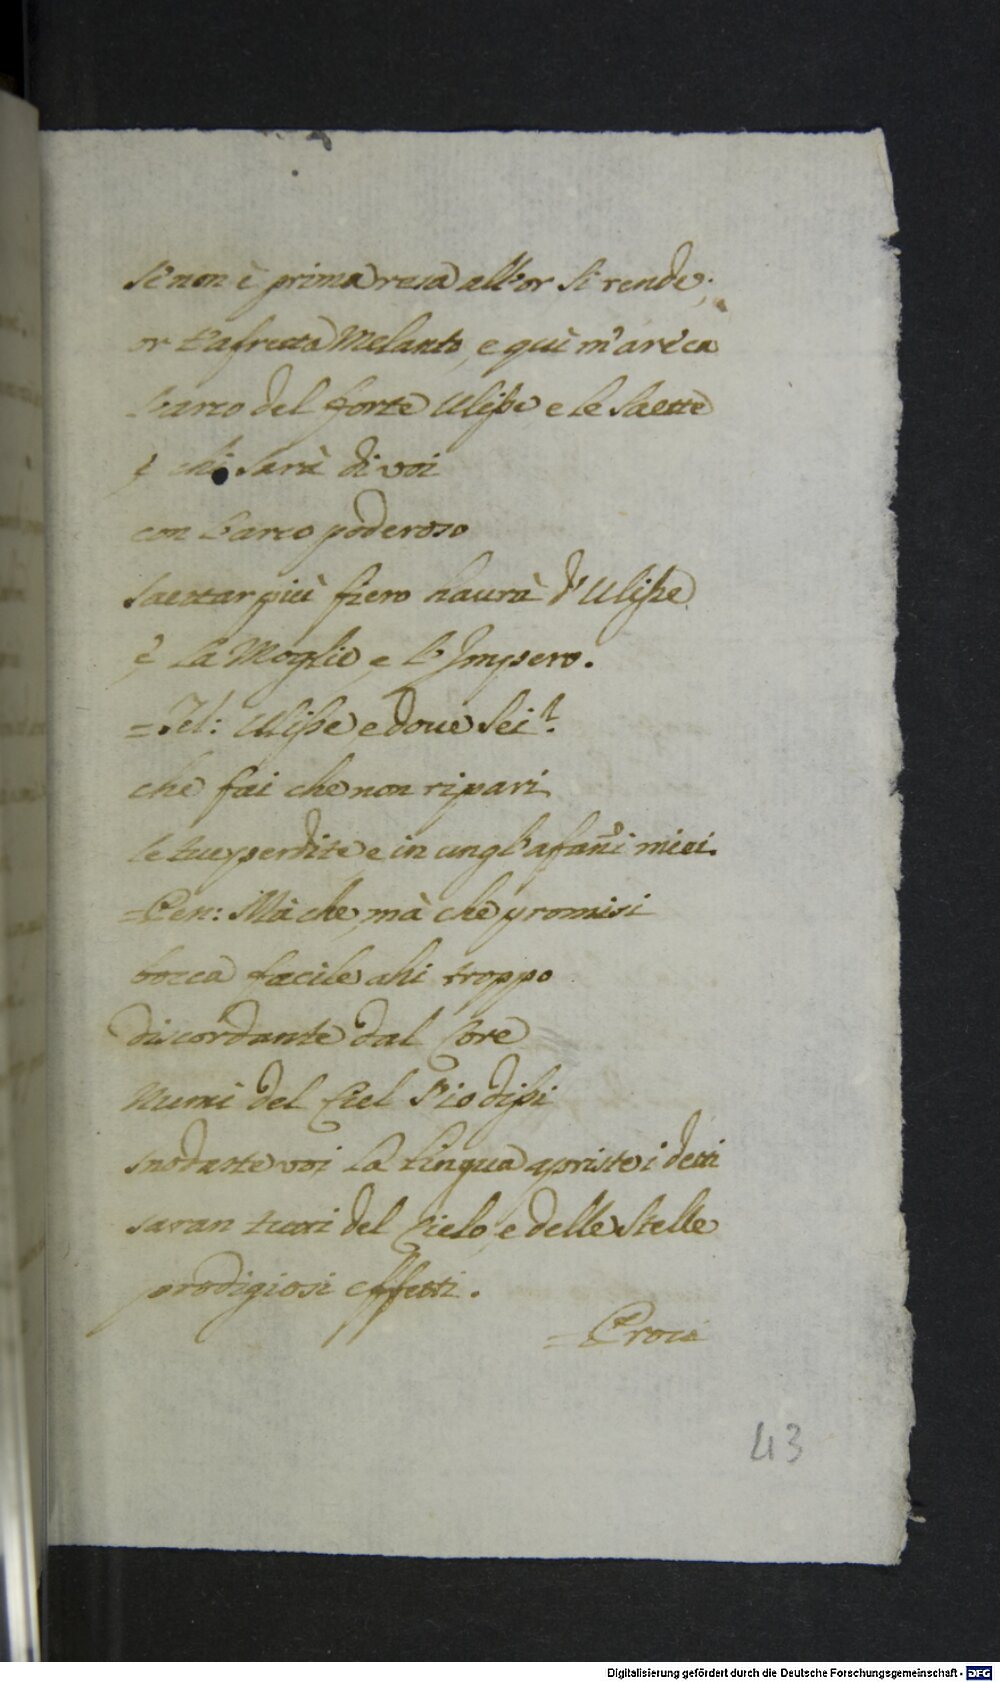 se non è prima resa all'or si rende;
or t'afretta Melanto, e quì m'areca
l'arco del forte Ulisse e le saette
e chi sarà di voi
con l'arco poderoso
saettar più fiero haurà d'Ulisse
è la Moglie, e l'Impero.
=Tel: Ulisse e doue sei?
che fai che non ripari
le tue perdite e in un gl'afanni miei.
=Pen: Mà che, mà che promisi
bocca facile ahi troppo
discordante dal Core
Numi del Ciel s'io dissi
snodaste voi la lingua apriste i detti
saran tutti del Cielo, e delle stelle
prodigiosi effetti.
=Proci
43
Digitalisierung gefördert durch die Deutsche Forschungsgemeinschaft - DFG